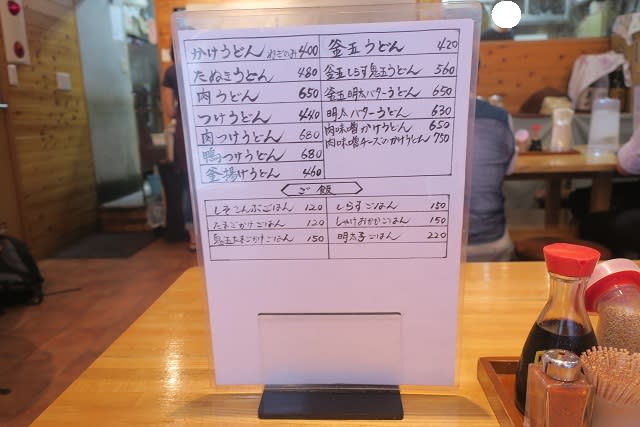 かけうどん ねぎのみ 400
たぬきうどん 480
肉うどん 650
つけうどん 440
肉つけうどん 680
鴨つけうどん 680
釜揚げうどん 460
釜玉うどん 420
釜玉しらす鬼玉うどん 560
釜玉明太バターうどん 650
明太バターうどん 630
肉味噌かけうどん 650
肉味噌チーズのっかけうどん 750
ご飯
しそこんぶごはん 120
たまごかけごはん 120
鬼玉たまごかけごはん 150
しらすごはん 150
しゃけおかかごはん 150
明太子ごはん 220